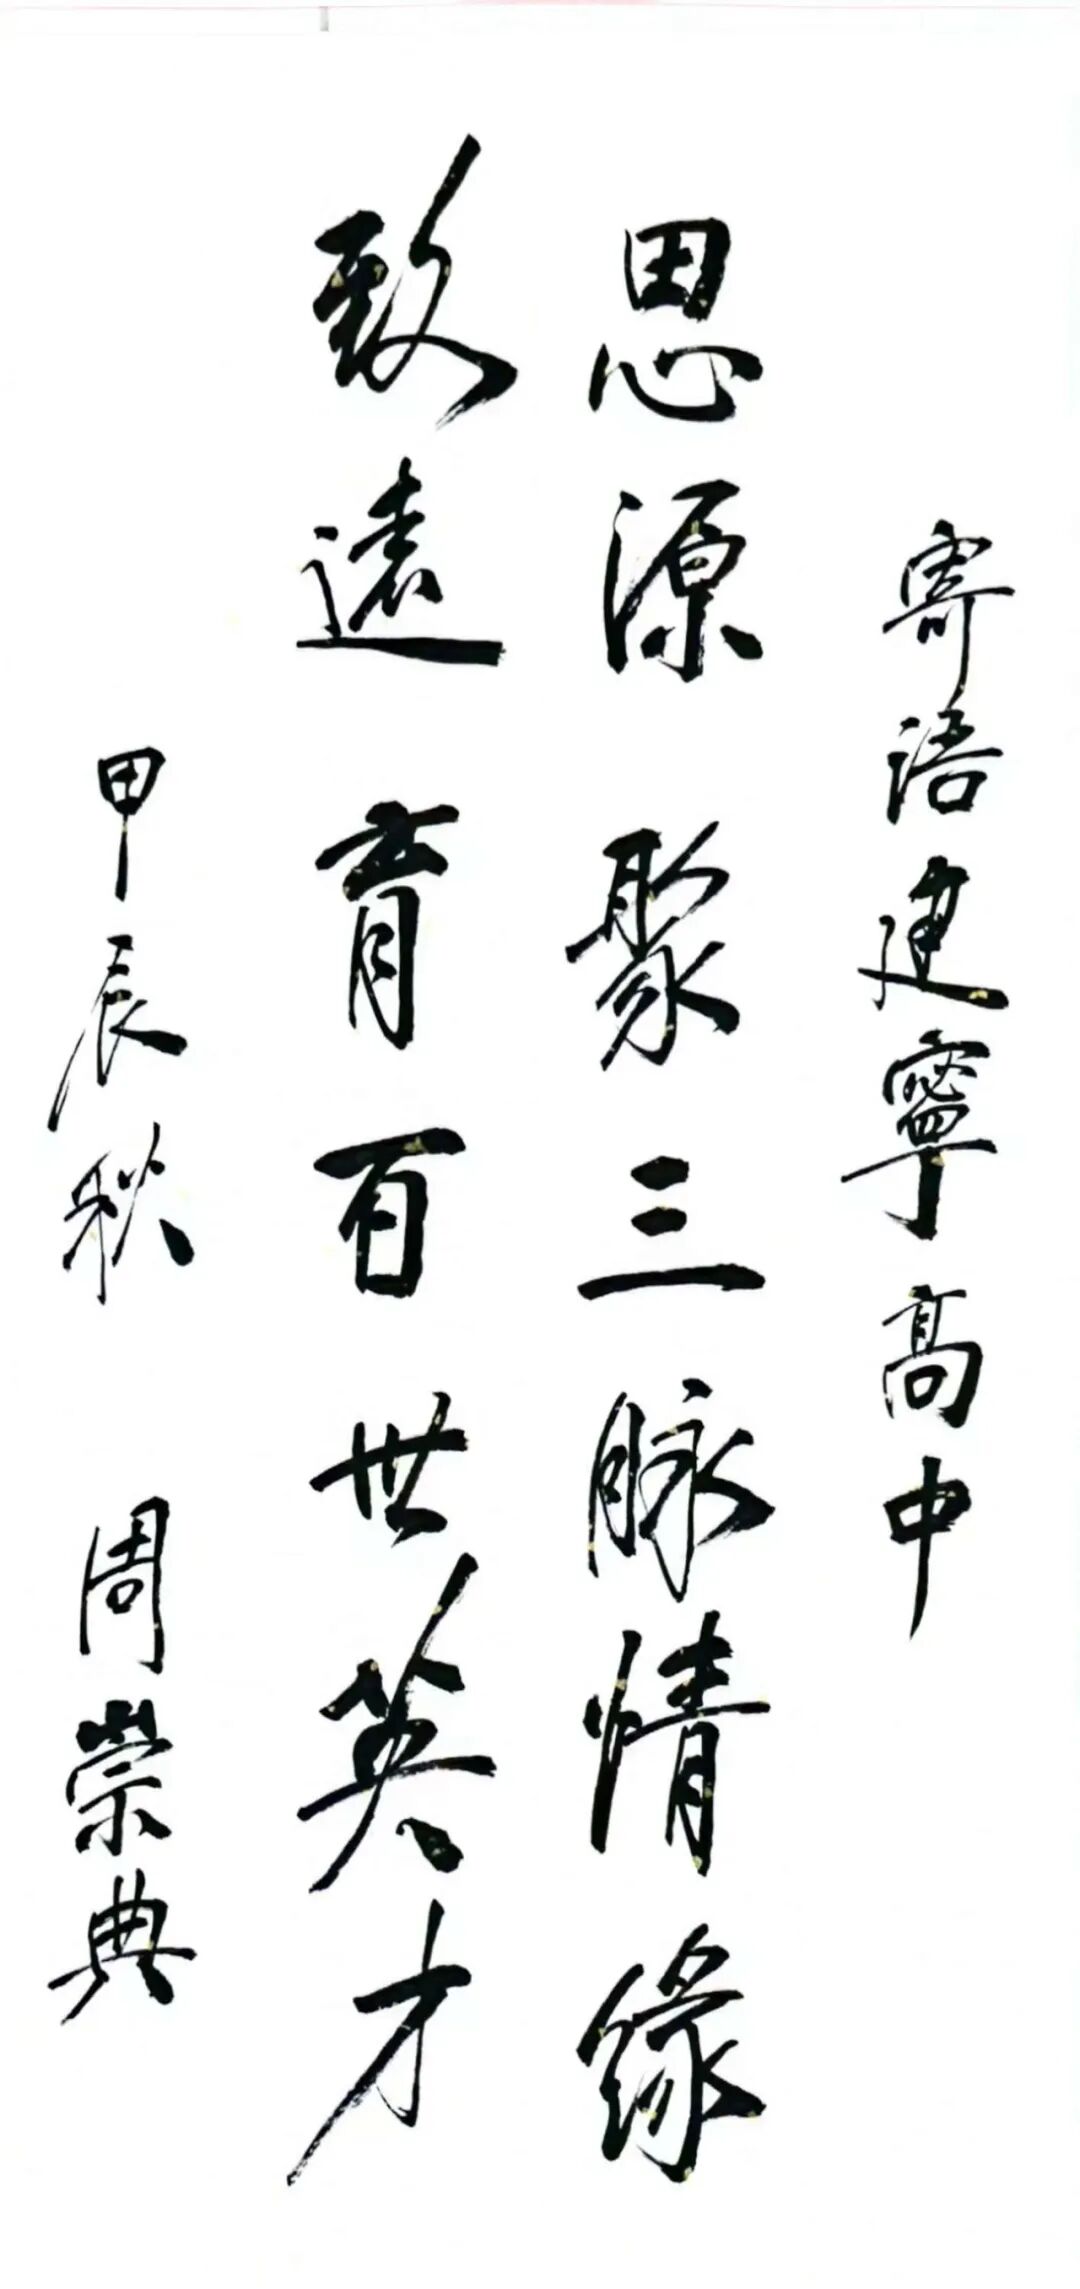 寄语建寧高中
思源聚三脉情缘
致遠育百世英才
甲辰秋 周崇典